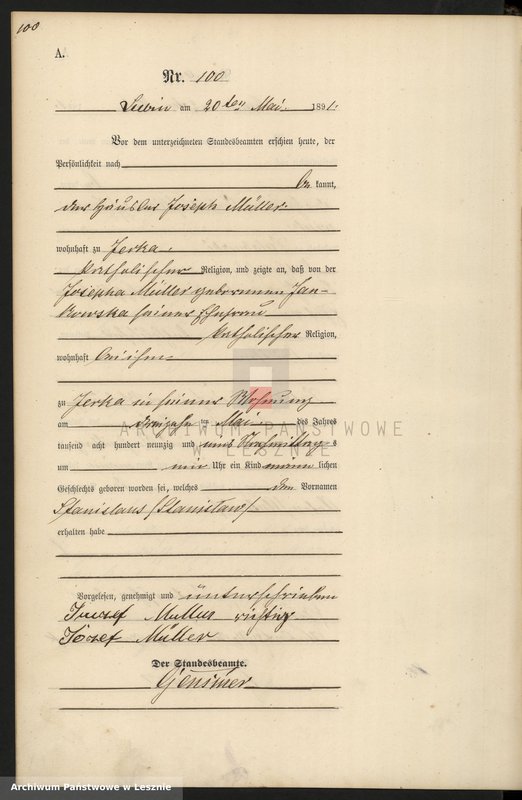 100
A.
Nr. 100
Lubin am 20ten Mai 1891.
Vor dem unterzeichneten Standesbeamten erschien heute, der
Persönlichkeit nach
be kannt,
der Häusler Joseph Müller
wohnhaft zu Jerka,
katholischer Religion, und zeigte an, daß von der
Josepha Müller geborenen Jan-
kowska seiner Ehefrau
katholischer Religion,
wohnhaft bei ihm
zu Jerka in seiner Wohnung
am dreizehn ten Mai des Jahres
tausend acht hundert neunzig und eins Nachmittag s
um Uhr ein Kind männ lichen
Geschlechts geboren worden sei, welches den Vornamen
Stanislaus /Stanisław/
erhalten habe
Vorgelesen, genehmigt und unterschrieben
Juozef Mullus richtig
Józef Müller
Der Standesbeamte.
Gensmer
ARCHIWUM PAŃSTWOWE
W LESZNIE
Archiwum Państwowe w Lesznie